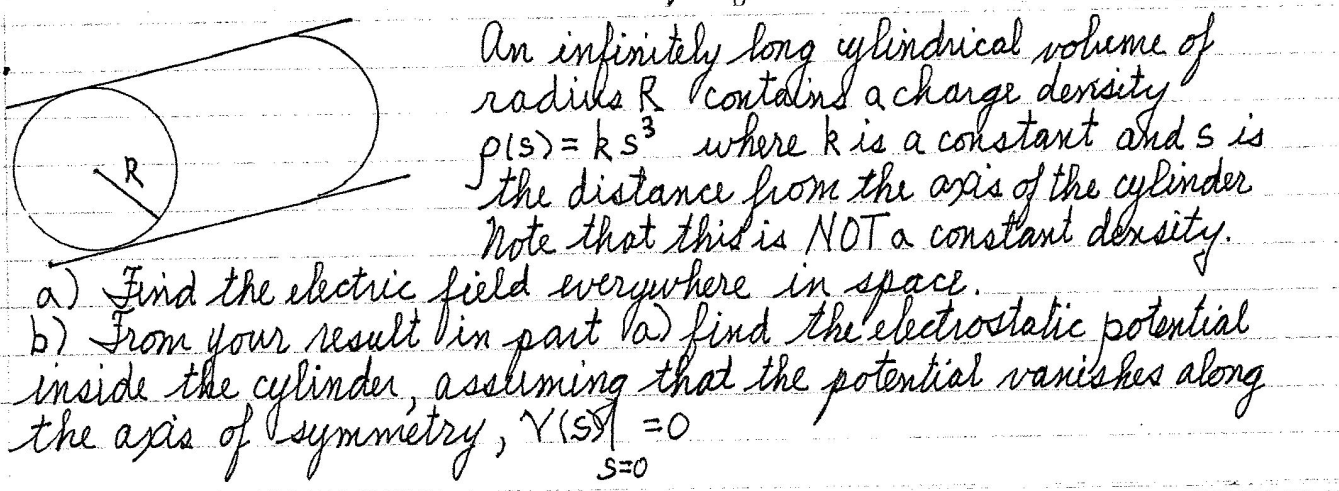 An infinitely long cylindrical volume of
radius R contains a charge density
ρ(s) = k s³ where k is a constant and s is
the distance from the axis of the cylinder
Note that this is NOT a constant density.
R
a) Find the electric field everywhere in space.
b) From your result in part a) find the electrostatic potential
inside the cylinder, assuming that the potential vanishes along
the axis of symmetry, V(s)| = 0
s=0